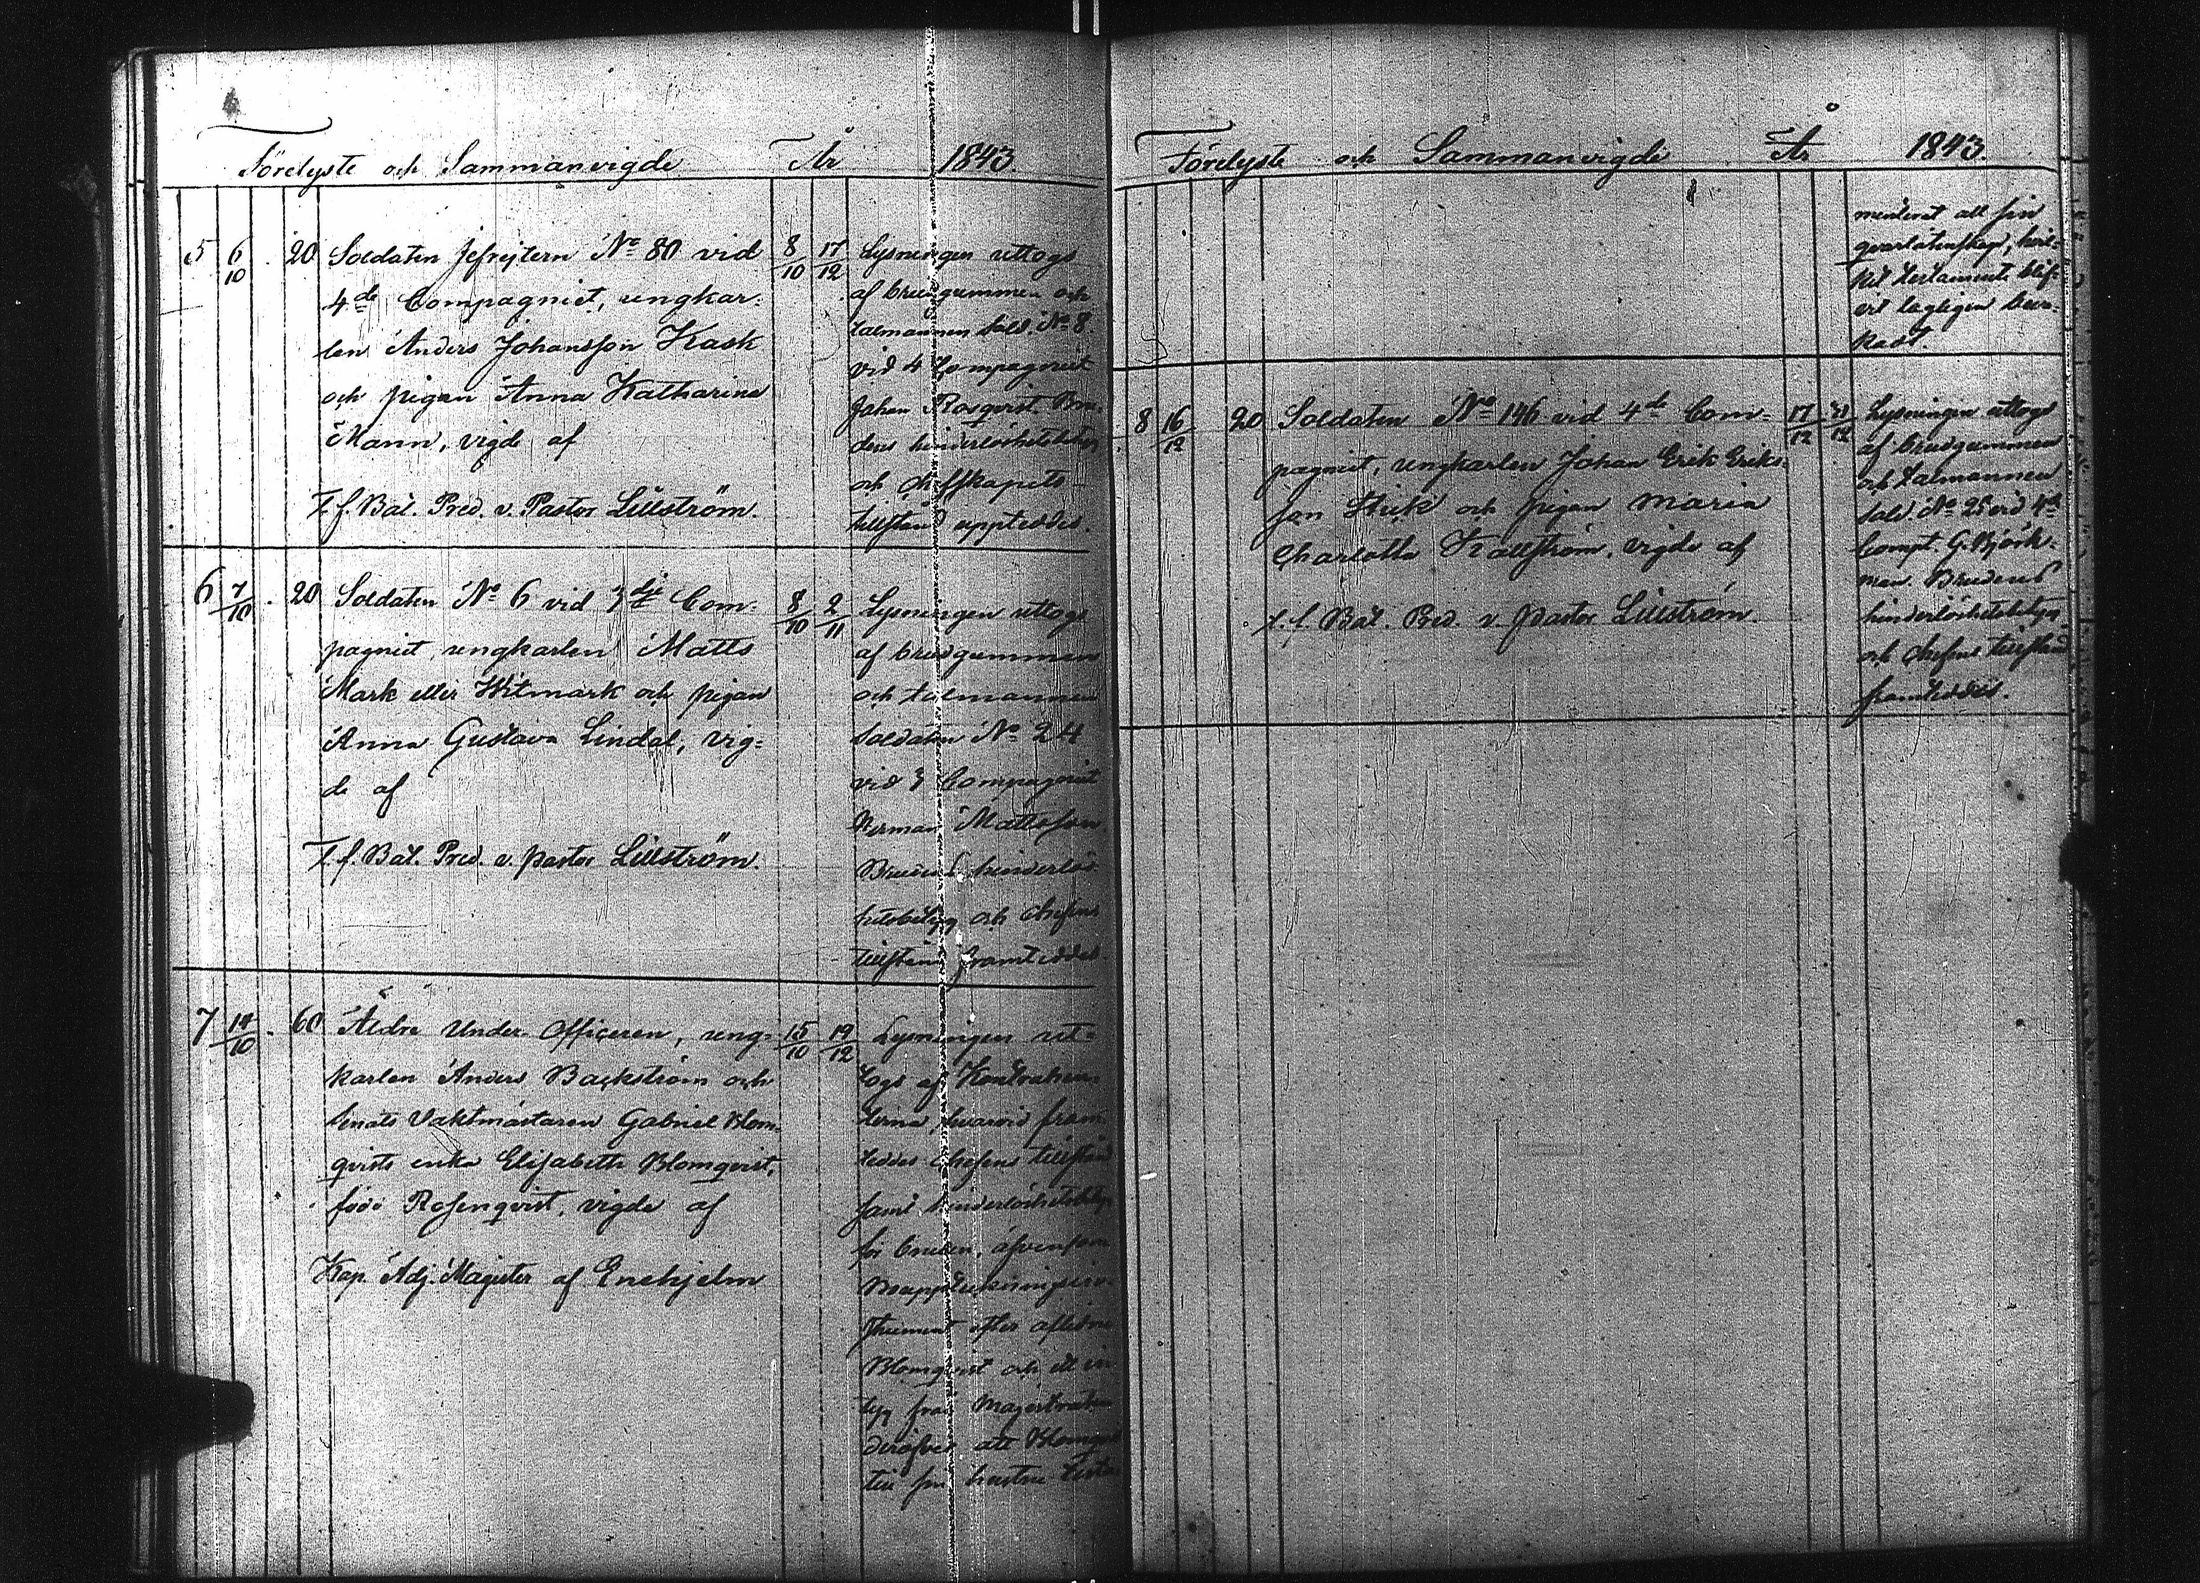 Förelyste och Sammanvigde År 1843.
5 6/10 . 20 Soldaten Jefrejtern No 80 vid 8/10 17/12
4de Compagniet, ungkar-
len Anders Johansson Kask
och pigan Anna Katharina
Mann, vigde af
T. f. Bat. Pred. v. Pastor Lillström.
Lysningen uttogs
af brudgummen och
talmannen Sold. No 8
vid 4 Compagniet
Johan Rosqvist. Bru-
dens hinderlöshetsbetyg
och cheffskapets
tillstånd uppteddes.
6 7/10 . 20 Soldaten No 6 vid 3dje Com- 8/10 2/11
pagniet, ungkarlen Matts
Mark eller Witmark och pigan
Anna Gustava Lindal, vig-
de af
T. f. Bat. Pred. v. pastor Lillström.
Lysningen uttogs
af brudgummen
och talmannen
Soldaten No 24
vid 3 Compagniet
Herman Mattsson.
Brudens hinderlös-
hetsbetyg och Chefens
tillstånd framteddes.
7 14/10 . 60 Äldre Under-Officeren, ung- 15/10 19/12
karlen Anders Backström och
Senats Vaktmästaren Gabriel Blom-
qvists enka Elisabeth Blomqvist,
född Rosenqvist, vigde af
Kap. Adj. Magister af Enehjelm
Lysningen ut-
togs af Kontrahen-
terna, hvarvid fram-
teddes Chefens tillstånd
samt hinderlöshetsbetyg
för bruden, äfvensom
Bouppteckningsin-
strument efter aflidne
Blomqvist och ett in-
tyg från Magistraten
deröfver att Blomqvist
till sin hustru testa-
Förelyste och Sammanvigde År 1843.
menterat all sin
qvarlåtenskap, hvil-
ket testament blif-
vit lagligen beva-
kadt.
8 16/12 20 Soldaten No 146 vid 4de Com- 17/12 31/12
pagniet, ungkarlen Johan Erik Eriks-
son Stick och pigan Maria
Charlotta Källström, vigde af
t. f. Bat. Pred. v. Pastor Lillström.
Lysningen uttogs
af brudgummen
och talmannen
Sold. No 25 vid 4de
Comp. G. Björk-
man. Brudens
hinderlöshetsbetyg
och chefens tillstånd
framteddes.